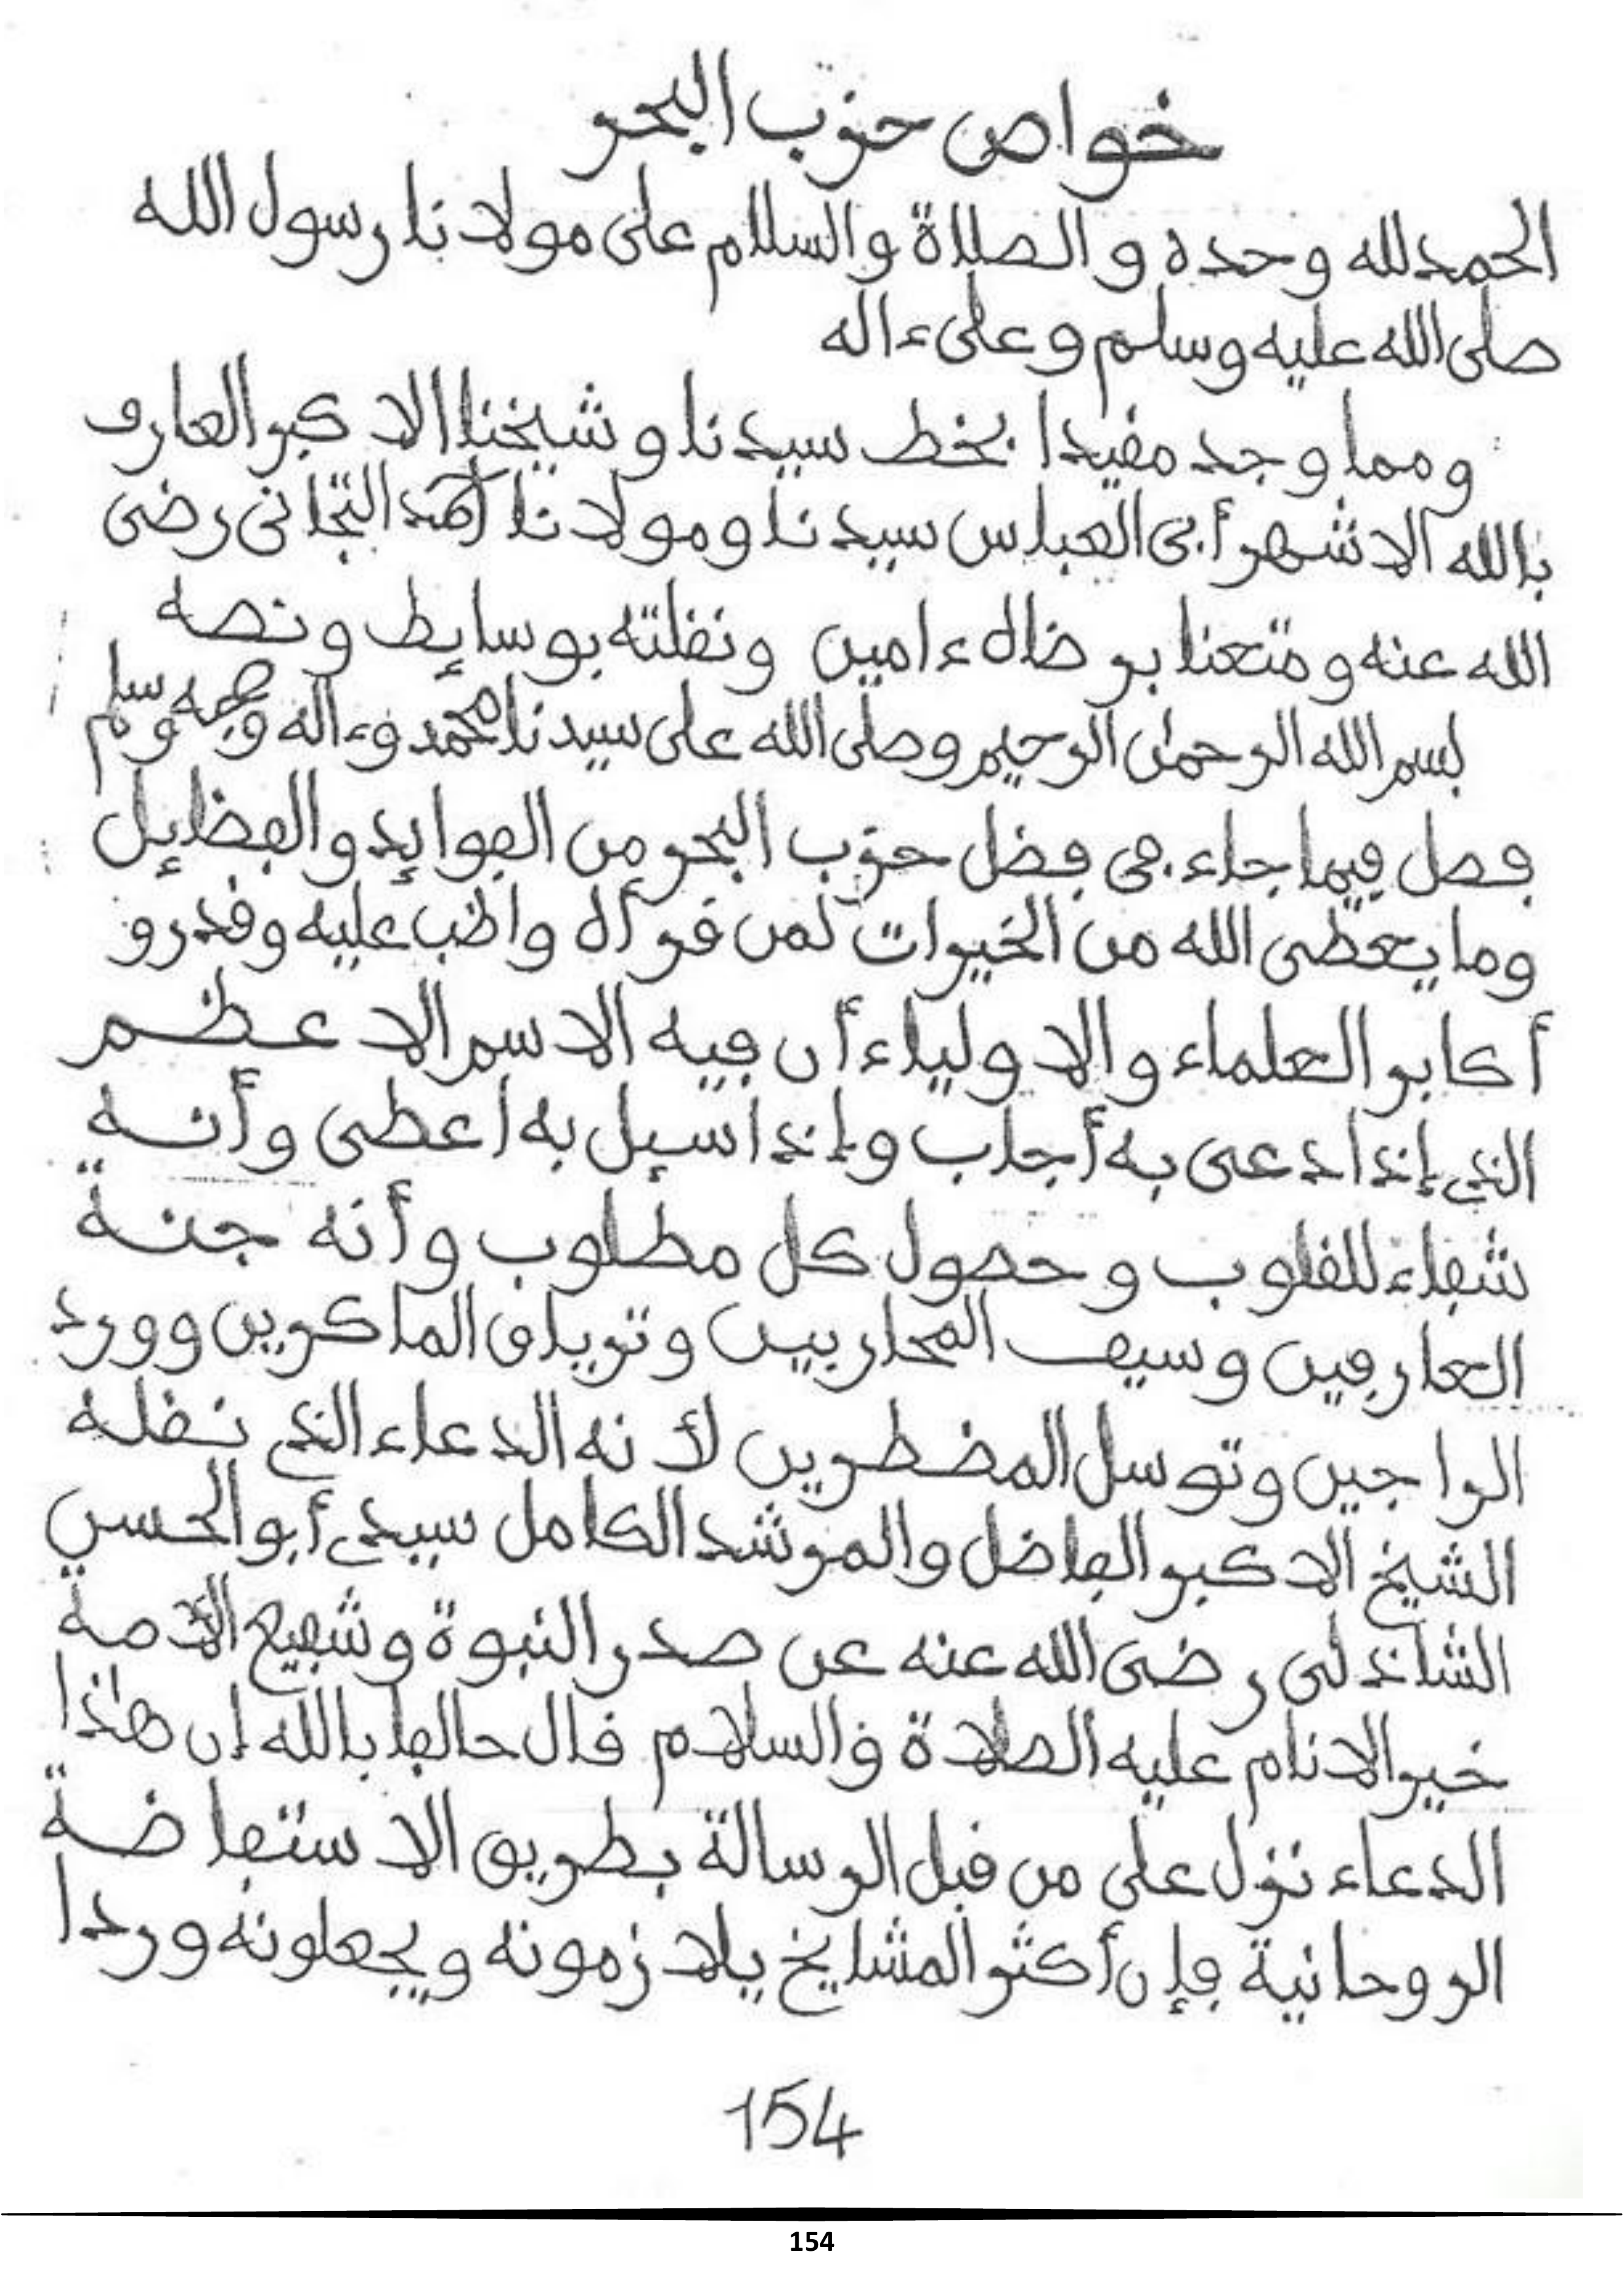 خواص حزب البحر
الحمد لله وحده والصلاة والسلام على مولانا رسول الله
صلى الله عليه وسلم وعلى ءاله
ومما وجد مفيدا بخط سيدنا وشيخنا الاكبر العارف
بالله الاشهر أبى العباس سيدنا ومولانا أحمد التجانى رضى
الله عنه ومتعنا برضاه ءامين ونقلته بوسايط ونصه
بسم الله الرحمان الرحيم وصلى الله على سيدنا محمد وءاله وصحبه وسلم
فصل فيما جاء فى فضل حزب البحر من الفوايد والفضايل
وما يعطى الله من الخيرات لمن قرأه واظب عليه وقدرو
أكابر العلماء والاولياء أن فيه الاسم الاعظم
الذي إذا دعى به أجاب وإذا سيل به اعطى وأنه
شفاء للقلوب وحصول كل مطلوب وأنه جنة
العارفين وسيف المحاربين وترياق الماكرين وورد
الراجين وتوسل المضطرين لأنه الدعاء الذي نقله
الشيخ الاكبر الفاضل والمرشد الكامل سيدي أبو الحسن
الشاذلى رضى الله عنه عن صدر النبوة وشفيع الأمة
خير الانام عليه الصلاة والسلام قال حالفا بالله إن هاذا
الدعاء نزل علي من قبل الرسالة بطريق الاستفاضة
الروحانية فإن أكثر المشايخ يلازمونه ويجعلونه وردا
154
154